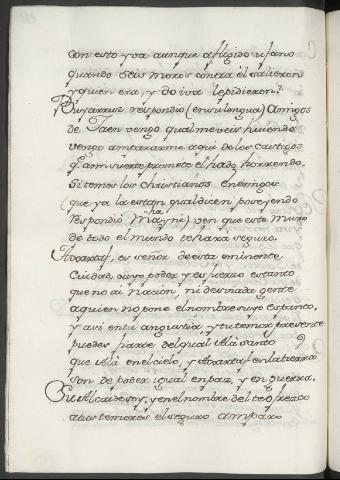 con esto yva aunque afligido ufano
quando seis moros contra él salieron
y quien era, y do iva le pidieron?
Puyarruz respondio (en su lengua) Amigos
de Jaen vengo qual me veis huiendo
vengo ampararme aqui de los castigos
q. a mi suerte promete el hado horrendo.
Si temes los Christianos enemigos
(que ya la estan qual dicen poseyendo
respondió Mahayni) ven que este muro
de todo el mundo te hará seguro.
Axartaf, es señor de esta eminente
Ciudad, cuyo poder y esfuerzo es tanto
que no ai nacion, ni desviada gente
a quien no pone el nombre suyo espanto,
y asi en tu angustia, y tu temor presente
puedes fiarte del qual Alá santo
que Alá en el cielo, y Axartaf en la tierra
son de poder igual en paz, y en guerra.
Su Alcaide soy; y en el nombre del te ofrezco
a tus temores el seguro amparo